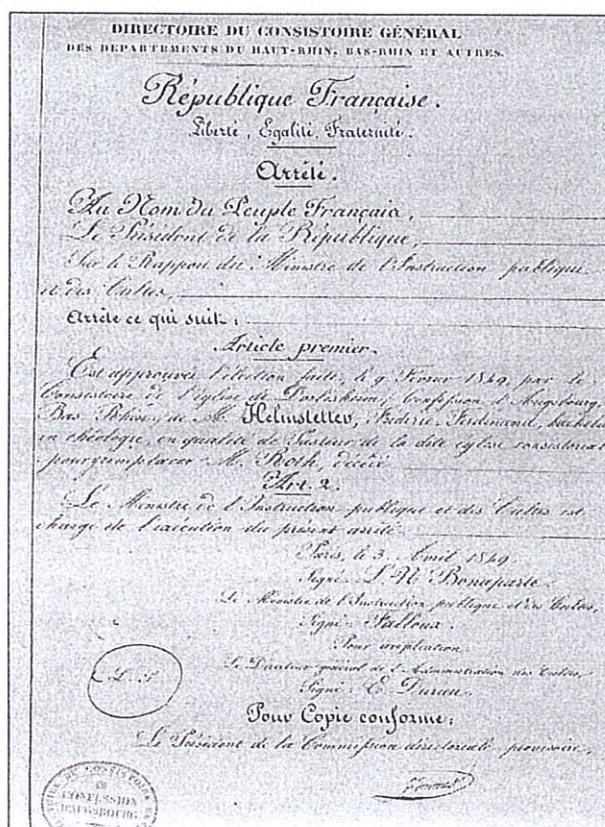 DIRECTOIRE DU CONSISTOIRE GÉNÉRAL
DES DÉPARTEMENTS DU HAUT-RHIN, BAS-RHIN ET AUTRES.
République Française.
Liberté, Egalité, Fraternité.
Arrêté.
Au Nom du Peuple Français,
Le Président de la République,
Sur le Rapport du Ministre de l'Instruction publique
et des Cultes,
Arrête ce qui suit:
Article premier.
Est approuvée l'élection faite, le 9 Février 1849, par le
Consistoire de l'église de Dorlisheim, Confession d'Augsbourg,
Bas Rhin, de M. Helmstetter, Fréderic, Ferdinand, bachelier
en théologie, en qualité de Pasteur de la dite église consistoriale
pour remplacer M. Roth, décédé
Art. 2.
Le Ministre de l'Instruction publique et des Cultes est
chargé de l'exécution du présent arrêté.
Paris, le 3. Avril 1849.
Signé: L. N. Bonaparte.
Le Ministre de l'Instruction publique et des Cultes,
Signé: Falloux.
Pour ampliation.
Le Directeur général de l'Administration des Cultes,
Signé: E. Durieu.
L. S.
Pour Copie conforme:
Le Président de la Commission directoriale provisoire,
CONFESSION
D'AUGSBOURG